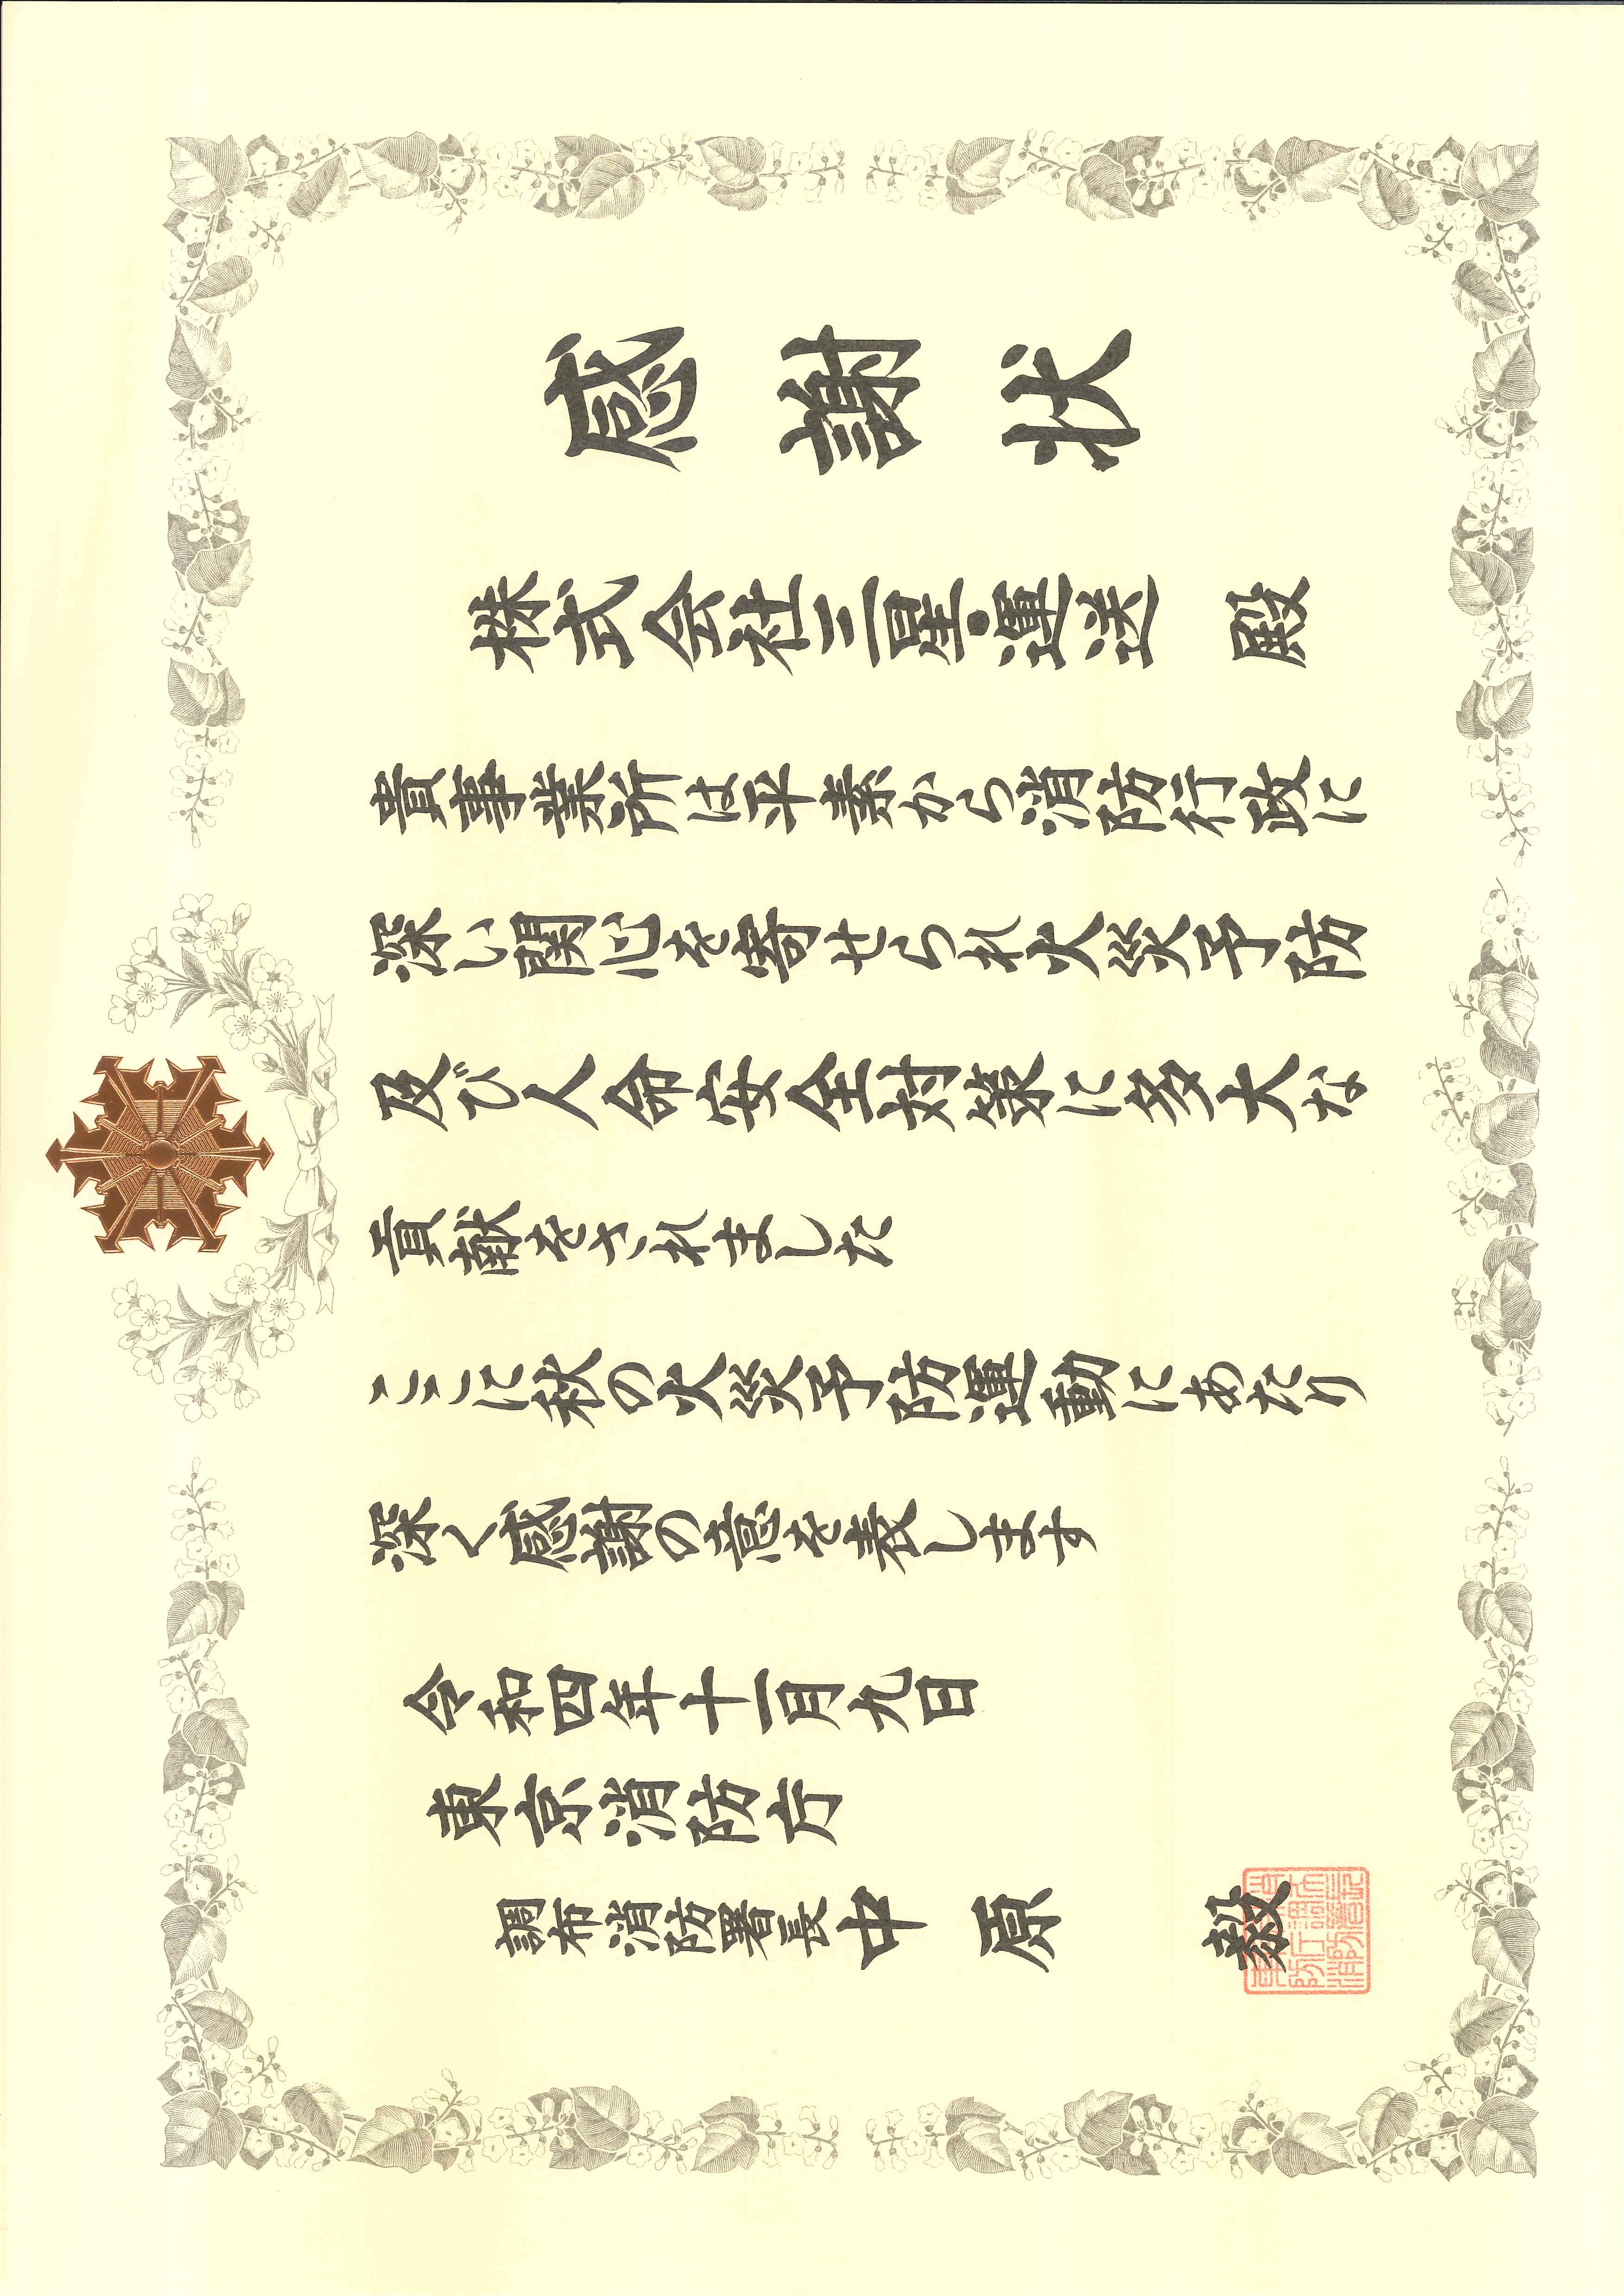 感謝状
株式会社三星・運送 殿
貴事業所は平素から消防行政に
深い関心を寄せられ火災予防
及び人命安全対策に多大な
貢献をされました
ここに秋の火災予防運動にあたり
深く感謝の意を表します
令和四年十一月九日
東京消防庁
調布消防署長 中原 毅